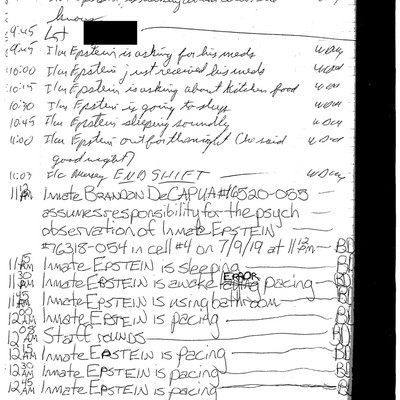 hours
9:45 Lt
9:45 I/m Epstein is asking for his meds
10:00 I/m Epstein just received his meds
10:15 I/m Epstein is asking about kitchen food
10:30 I/m Epstein is going to sleep
10:45 I/m Epstein sleeping soundly
11:00 I/m Epstein out for the night (he said
good night)
11:03 END SHIFT
11 PM Inmate BRANDON DeCAPUA #76520-053
assumes responsibility for the psych
observation of Inmate EPSTEIN
#76318-054 in cell #4 on 7/9/19 at 11 PM BD
11 15 PM Inmate EPSTEIN is sleeping BD
11 30 PM Inmate EPSTEIN is awake ERROR pacing BD
11 45 PM Inmate EPSTEIN is using bathroom BD
12 00 AM Inmate EPSTEIN is pacing BD
12 08 AM Staff rounds BD
12 15 AM Inmate EPSTEIN is pacing BD
12 30 AM Inmate EPSTEIN is pacing BD
12 45 AM Inmate EPSTEIN is pacing BD